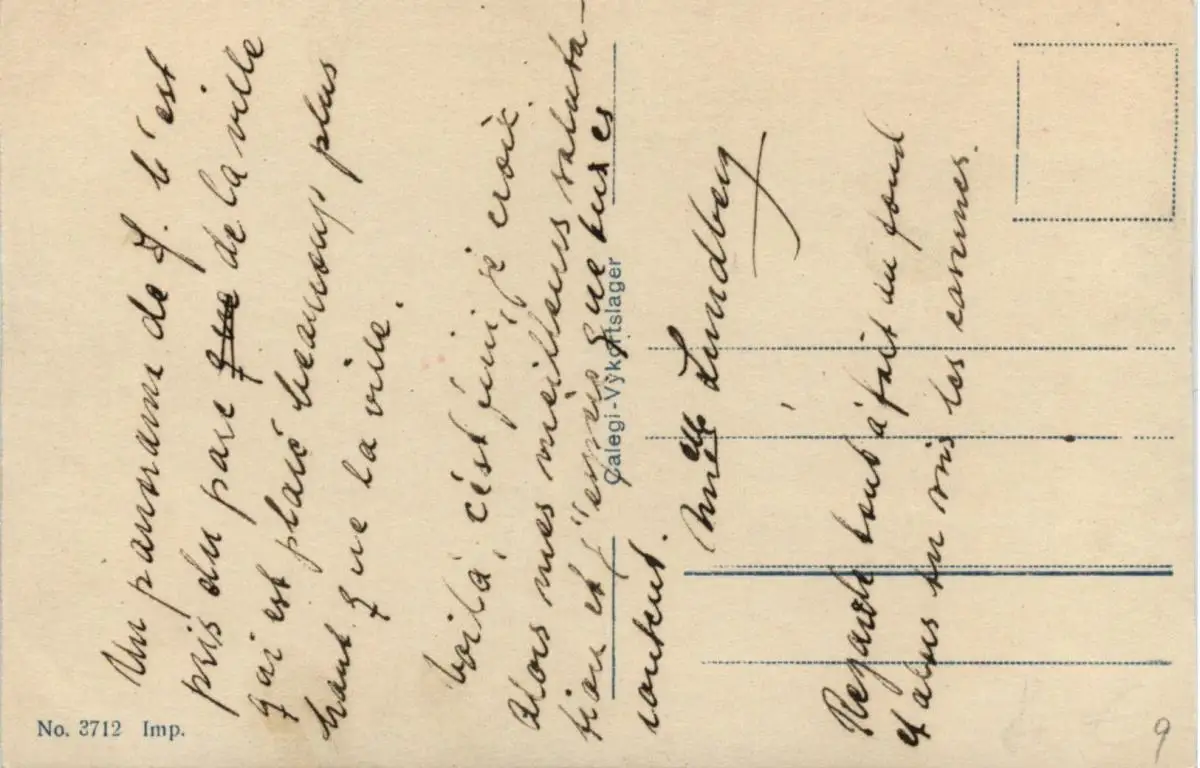 Un panorama de J. C'est
pris du parc que de la ville
qai est placé beaucoup plus
haut que la ville.
Voilà, c'est fini, je crois.
Alors mes meilleures saluta-
tion et j'espère que tu es
content.
Mlle Lundberg
Regarde tout à fait au fond
et alors tu vis les casernes.
Calegi-Vykortslager
No. 3712 Imp.
9